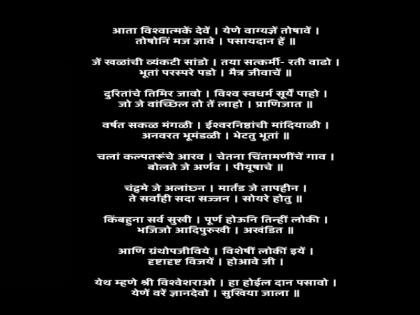 आता विश्वात्मकें देवें । येणे वाग्यज्ञें तोषावें ।
तोषोनिं मज ज्ञावे । पसायदान हें ॥
जें खळांची व्यंकटी सांडो । तया सत्कर्मी- रती वाढो ।
भूतां परस्परे पडो । मैत्र जीवाचें ॥
दुरितांचे तिमिर जावो । विश्व स्वधर्म सूर्यें पाहो ।
जो जे वांच्छिल तो तें लाहो । प्राणिजात ॥
वर्षत सकळ मंगळी । ईश्वरनिष्ठांची मांदियाळी ।
अनवरत भूमंडळी । भेटतु भूतां ॥
चलां कल्पतरूंचे आरव । चेतना चिंतामणींचें गाव ।
बोलते जे अर्णव । पीयूषाचे ॥
चंद्रमे जे अलांछन । मार्तंड जे तापहीन ।
ते सर्वांही सदा सज्जन । सोयरे होतु ॥
किंबहुना सर्व सुखी । पूर्ण होऊनि तिन्हीं लोकी ।
भजिजो आदिपुरुखी । अखंडित ॥
आणि ग्रंथोपजीविये । विशेषीं लोकीं इयें ।
दृष्टादृष्ट विजयें । होआवे जी ।
येथ म्हणे श्री विश्वेशराओ । हा होईल दान पसावो ।
येणें वरें ज्ञानदेवो । सुखिया जाला ॥